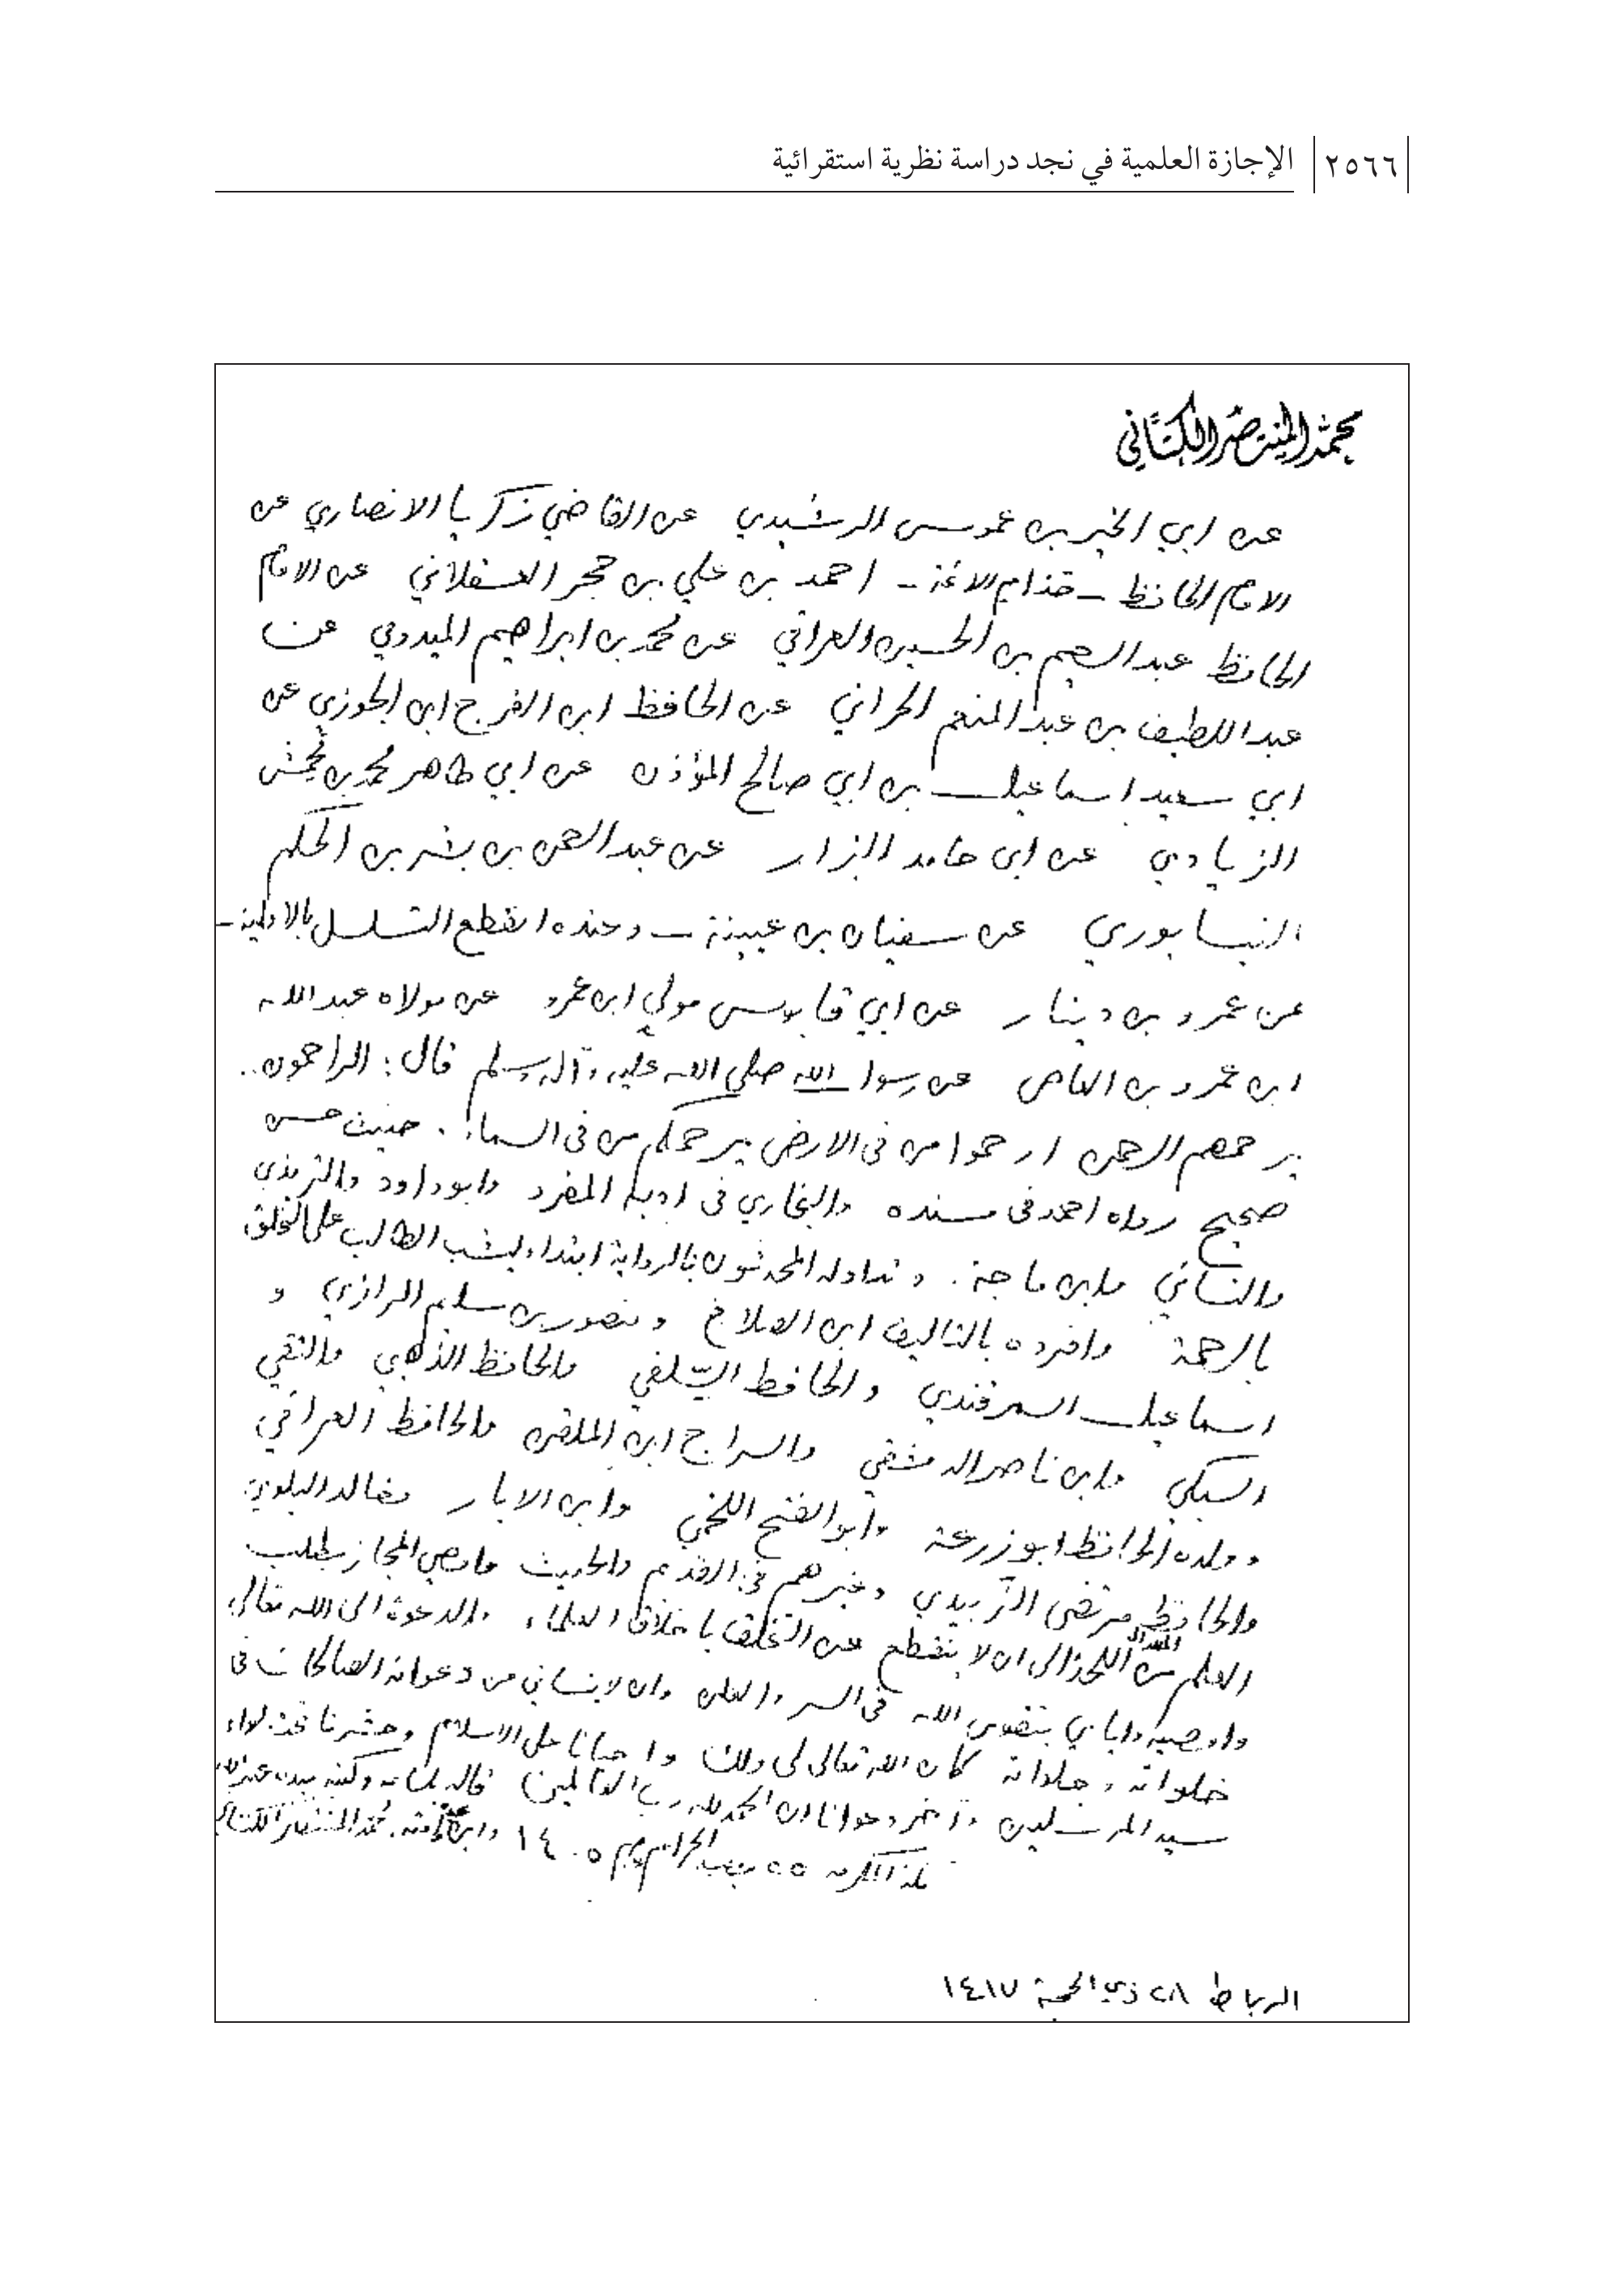 ٢٥٦٦ الإجازة العلمية في نجد دراسة نظرية استقرائية
محمد المنتصر الكتاني
عن ابي الخير بن عموس الرشيدي عن القاضي زكريا الانصاري عن
الامام الحافظ – خذام الائمة – احمد بن علي بن حجر العسقلاني عن الامام
الحافظ عبد الرحيم بن الحسين العراقي عن محمد بن ابراهيم الميدومي عن
عبد اللطيف بن عبد المنعم الحراني عن الحافظ ابن الفرج ابن الجوزي عن
ابي سعيد اسماعيل بن ابي صالح المؤذن عن ابي طاهر محمد بن محمش
الزيادي عن ابي حامد البزار عن عبد الرحمن بن بشر بن الحكم
النيسابوري عن سفيان بن عيينة – وعنده انقطع التسلسل بالاولية –
عن عمرو بن دينار عن ابي قابوس مولى ابن عمرو عن مولاه عبد الله
ابن عمرو بن العاص عن رسول الله صلى الله عليه وآله وسلم قال: الراحمون..
يرحمهم الرحمن ارحموا من في الارض يرحمكم من في السماء. حديث حسن
صحيح رواه احمد في مسنده والبخاري في ادبه المفرد وابو داود والترمذي
والنسائي وابن ماجة. وتداوله المحدثون بالرواية ابتداء ليشب الطالب على التخلق
بالرحمة وافرده بالتاليف ابن الصلاح ومنصور بن سليم الرازي و
اسماعيل السمرقندي والحافظ السِّلفي والحافظ الذهبي والتقي
السبكي وابن ناصر الدمشقي والسراج ابن الملقن والحافظ العراقي
وولده الحافظ ابو زرعة وابو الفتح اللخمي وابن الابار وخالد البلوي
والحافظ مرتضى الزَّبيدي وغيرهم في القديم والحديث واوصي المجاز بطلب
العلم من المهد الى اللحد والى ان لا ينقطع عن التخلق باخلاق العلماء والدعوة الى الله تعالى
واوصيه واياي بتقوى الله في السر والعلن وان لا ينساني من دعواته الصالحات في
خلواته وجلواته كان الله تعالى لي ولك واحيانا على الاسلام وحشرنا تحت لواء
سيد المرسلين وآخر دعوانا ان الحمد لله رب العالمين قاله بلسانه وكتبه بيده
محمد المنتصر الكتاني
١٤٠٥
الرباط ٢٨ ذي الحجة ١٤١٧